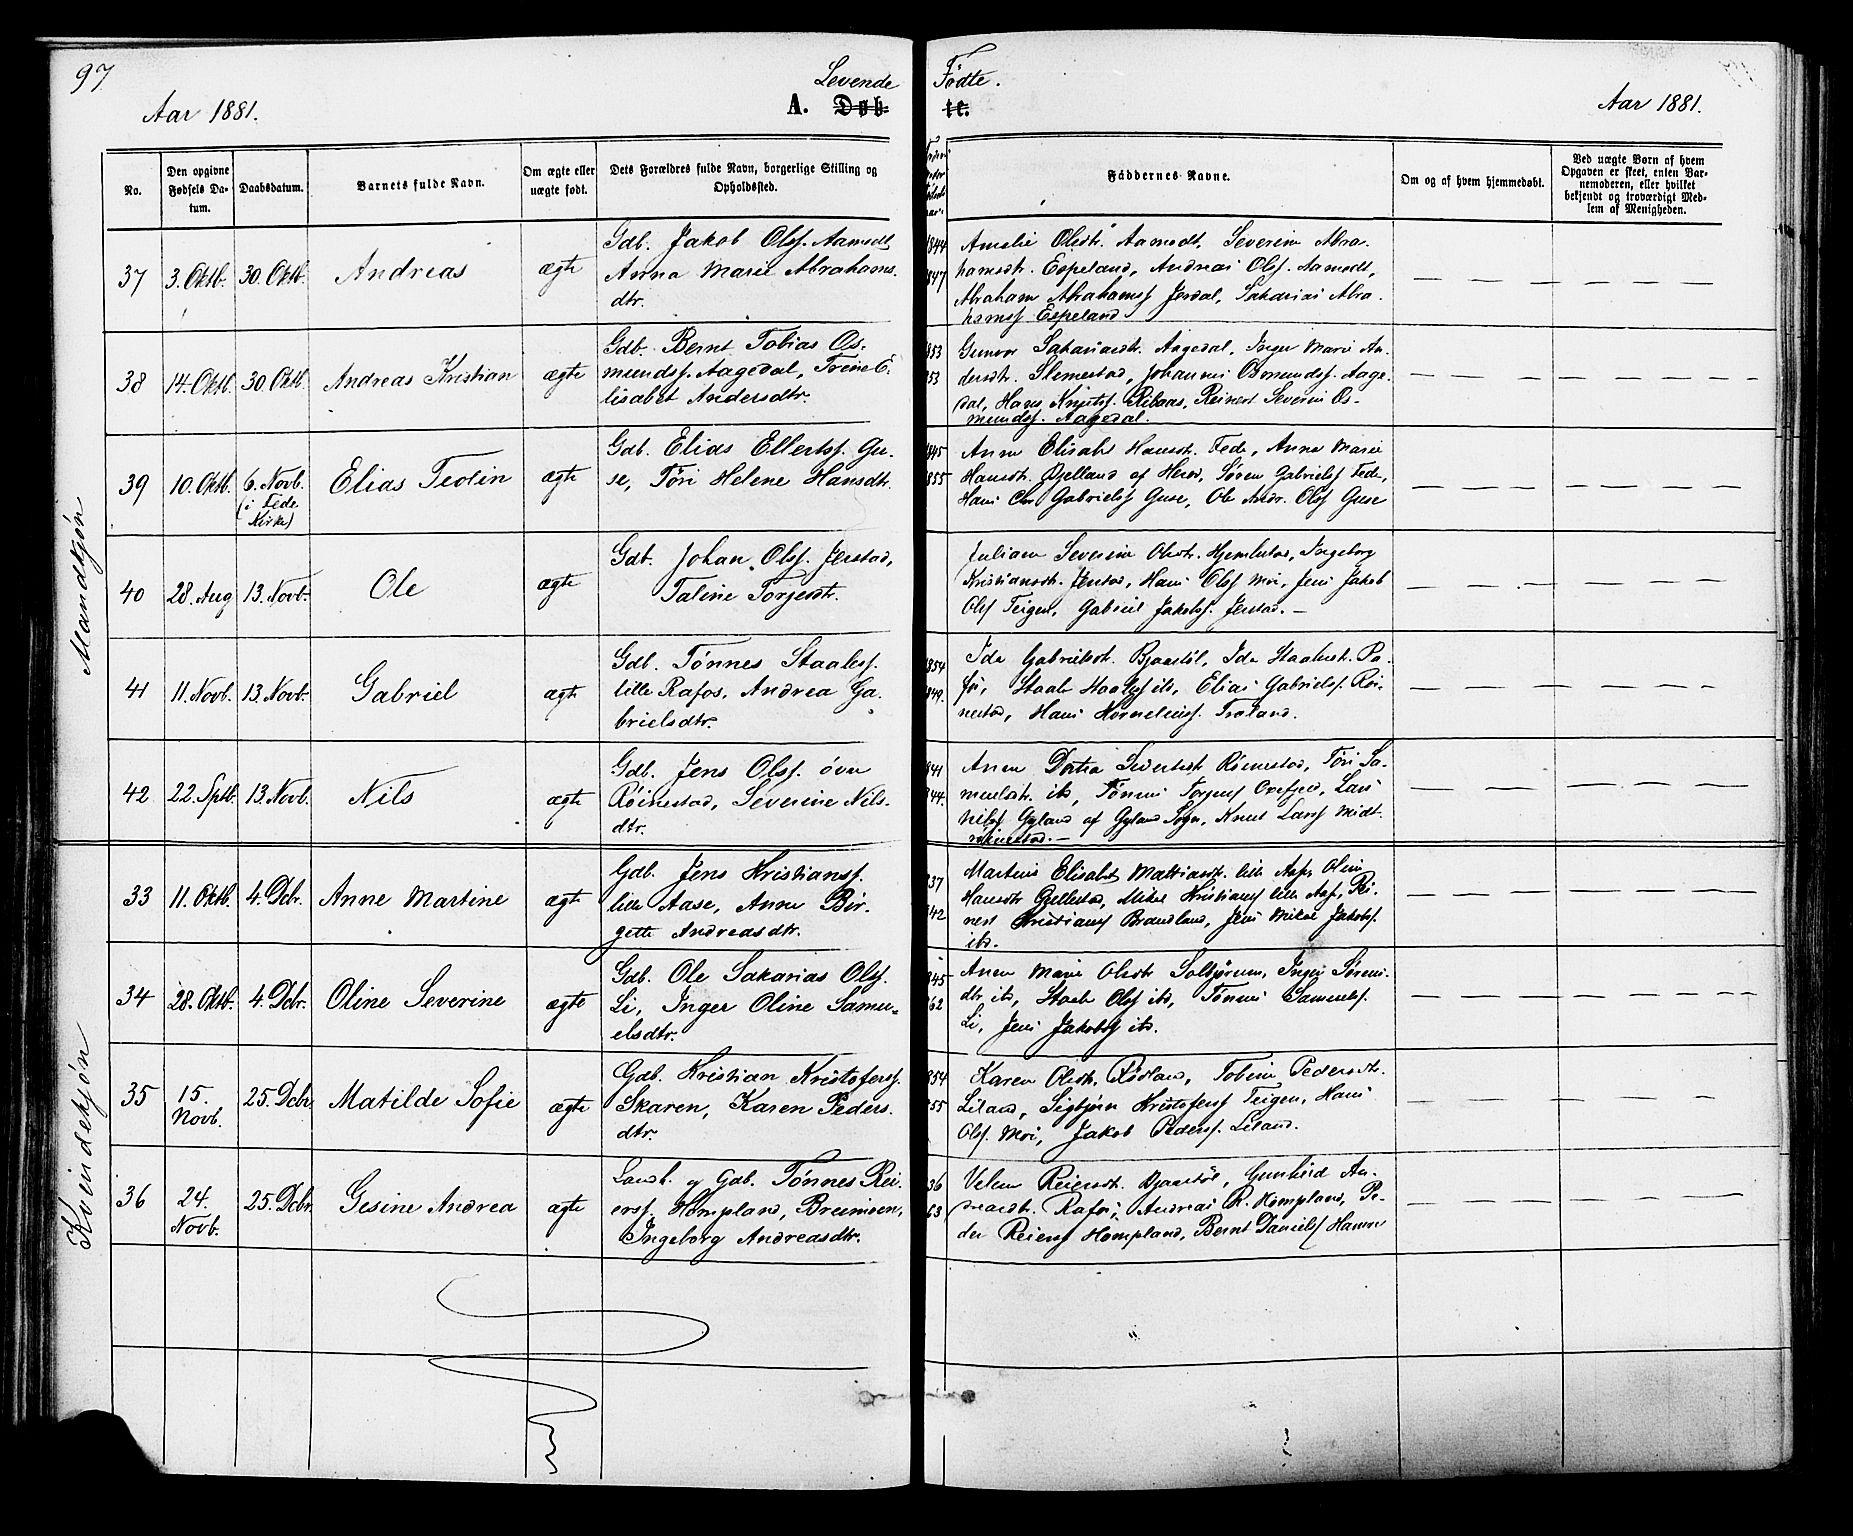 97
Levende Fødte.
Aar 1881. A. Døbte. Aar 1881.
No.
Den opgivne Fødsels Datum.
Daabsdatum.
Barnets fulde Navn.
Om ægte eller uægte født.
Dets Forældres fulde Navn, borgerlige Stilling og Opholdssted.
Faddernes Navne.
Om og af hvem hjemmedøbt.
Ved uægte Børn af hvem Opgaven er skeet, enten Barnemoderen, eller hvilket bekjendt og troværdigt Medlem af Menigheden.
Mandkjøn
37 3. Oktb. 30. Oktb. Andreas ægte
Gdb. Jakob Olsf. Aamodt
Anna Marie Abrahams-
dtr.
1844
1847
Amalie Olsdtr. Aamodt, Severine Abra-
hamsdtr. Espeland, Andreas Olsf. Aamodt,
Abraham Abrahamsf. Jerdal, Sakarias Abra-
hamsf Espeland
38 14. Oktb. 30. Oktb. Andreas Kristian ægte
Gdb. Bernt Tobias Os-
mundsf. Aagedal, Trine E-
lisabet Andersdtr.
853
53
Gunvor Sakariasdtr. Aagedal, Inger Marie An-
dersdtr. Slimestad, Johannes Osmundsf. Aage-
dal, Hans Knutsf. Rilaas, Reinert Severin Os-
mundsf. Aagedal.
39 10. Oktb. 6. Novb. (i Fede Kirke) Elias Teolin ægte
Gdb. Elias Ellertsf. Gu-
se, Tøri Helene Hansdtr.
845
855
Anne Elisabet Hansdtr. Fede, Anna Marie
Hansdtr. Øjelland af Hered, Søren Gabrielsf Fede,
Hans Chr Gabrielsf Guse, Ole Andr. Olsf Guse
40 28. Aug 13. Novb. Ole ægte
Gdb. Johan Olsf. Jerstad,
Taline Torjersdtr.
Juliane Severine Olsdtr. Hjemlestad, Ingeborg
Kristiansdtr. Jerstad, Hans Olsf Moi, Jens Jakob
Olsf Teigen, Gabriel Jakobsf. Jerstad. —
41 11. Novb. 13. Novb. Gabriel ægte
Gdb. Tønnes Staalesf.
lille Rafos, Andrea Ga-
brielsdtr.
1854
1849.
Ida Gabrielsdtr. Bjaastøl, Ida Staalesdtr. Ra-
fos, Staale Staalesf ibd, Elias Gabrielsf. Røi-
nestad, Hans Korneliusf. Træland.
42 22. Sptb. 13. Novb. Nils ægte
Gdb. Jens Olsf. øvre
Røinestad, Severine Nils-
dtr.
1841
1844.
Anne Dortea Sivertsdtr Røinestad, Tøri Sa-
muelsdtr. ibd, Tønnes Torjersf Oxefjeld, Lars
Nilsf Gyland af Gyland Sogn, Knut Larsf Midt-
røinestad. —
Kvindekjøn
33 11. Oktb. 4. Dcbr. Anne Martine ægte
Gdb. Jens Kristiansf.
lille Aase, Anne Bir-
gette Andreasdtr.
37
842
Martine Elisabet Mattiasdtr. lille Aase, Oline
Hansdtr Gjellestad, Mikal Kristiansf lille Aase, Rei-
nert Kristiansf Brandland, Jens Mikal Jakobsf.
ibd.
34 28. Oktb. 4. Dcbr. Oline Severine ægte
Gdb. Ole Sakarias Olsf.
Li, Inger Oline Samu-
elsdtr.
845
862
Anne Marie Olsdtr Solbjørnes, Inger Sørens-
dtr. ibd, Staale Olsf ibd, Tønnes Samuelsf.
Li, Jens Jakobsf ibd.
35 15. Novb. 25. Dcbr Matilde Sofie ægte
Gdb. Kristian Kristofersf.
Skaren, Karen Peders-
dtr.
854
855
Karen Olsdtr. Rødland, Tobine Pedersdtr.
Liland, Sigbjørn Kristofersf Teigen, Hans
Olsf. Moi, Jakob Pedersf. Liland.
36 24. Novb. 25. Dcbr. Gesine Andrea ægte
Landh. og Gdb. Tønnes Rei-
ersf. Hompland, Breimoen,
Ingeborg Andreasdtr.
36
63
Velene Reiersdtr. Bjaastøl, Gunhild An-
dreasdtr. Rafos, Andreas R. Hompland, Pe-
der Reiersf Hompland, Bernt Danielsf Hamre